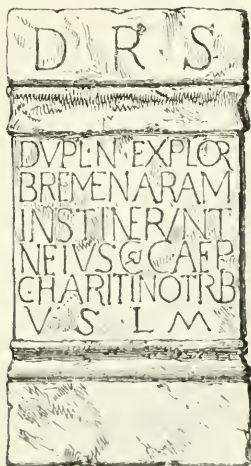 D R S
DVPL·N·EXPLOR
BREMENARAM
INSTINERVNT
NEIVS C·CAEP
CHARITINOTRB
V S L M